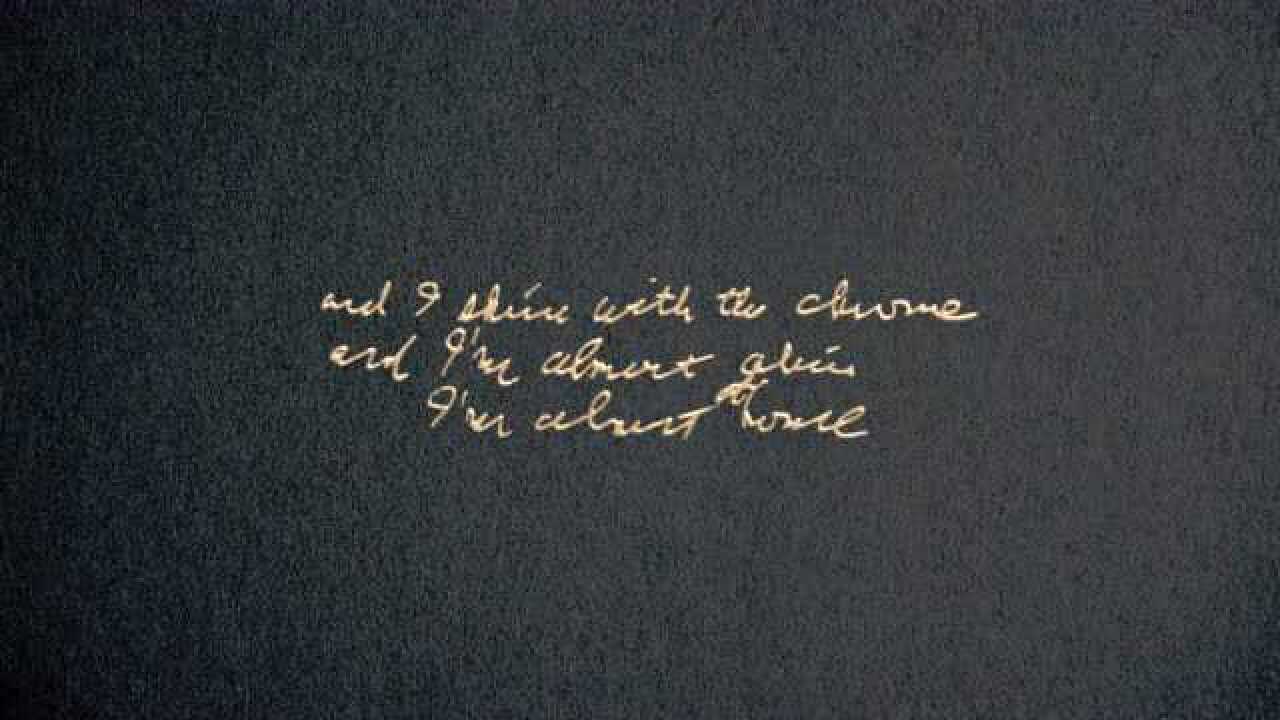 and I shine with the chrome
and I'm almost alive
I'm almost at home